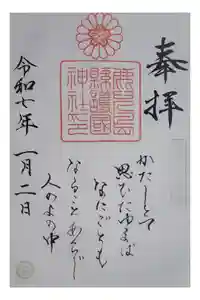 奉拝
鹿児島
縣護國
神社印
かたしとて
思ひたゆまば
なにごとも
なることあらじ
人のよの中
令和七年 一月二日